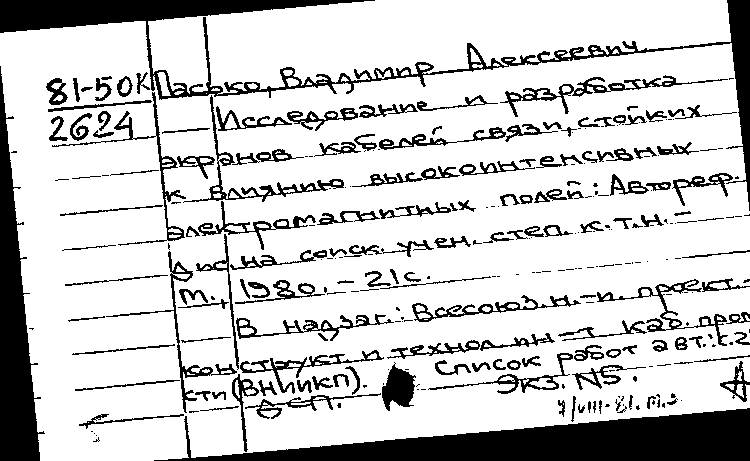 81-50К Пасько, Владимир Алексеевич.
2624 Исследование и разработка
экранов кабелей связи, стойких
к влиянию высокоинтенсивных
электромагнитных полей: Автореф.
дис. на соиск. учен. степ. к.т.н. -
М., 1980. - 21 с.
В надзаг.: Всесоюз. н.-и. проект.-
конструкт. и технол. ин-т каб. пром
сти (ВНИИКП). Список работ авт.: с. 2
ДСП. Экз. N5.